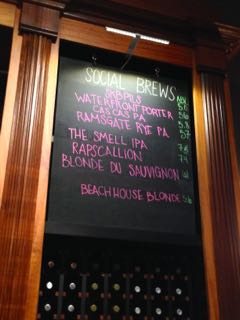 SOCIAL BREWS
SKB PILS
WATERFRONT PORTER 5.0
CASCAS PA 5.6
RAMSGATE RYE PA 5.8
5.7
THE SMELL IPA 7.8
RAPSCALLION 7.4
BLONDE DU SAUVIGNON
BEACH HOUSE BLONDE 5.6